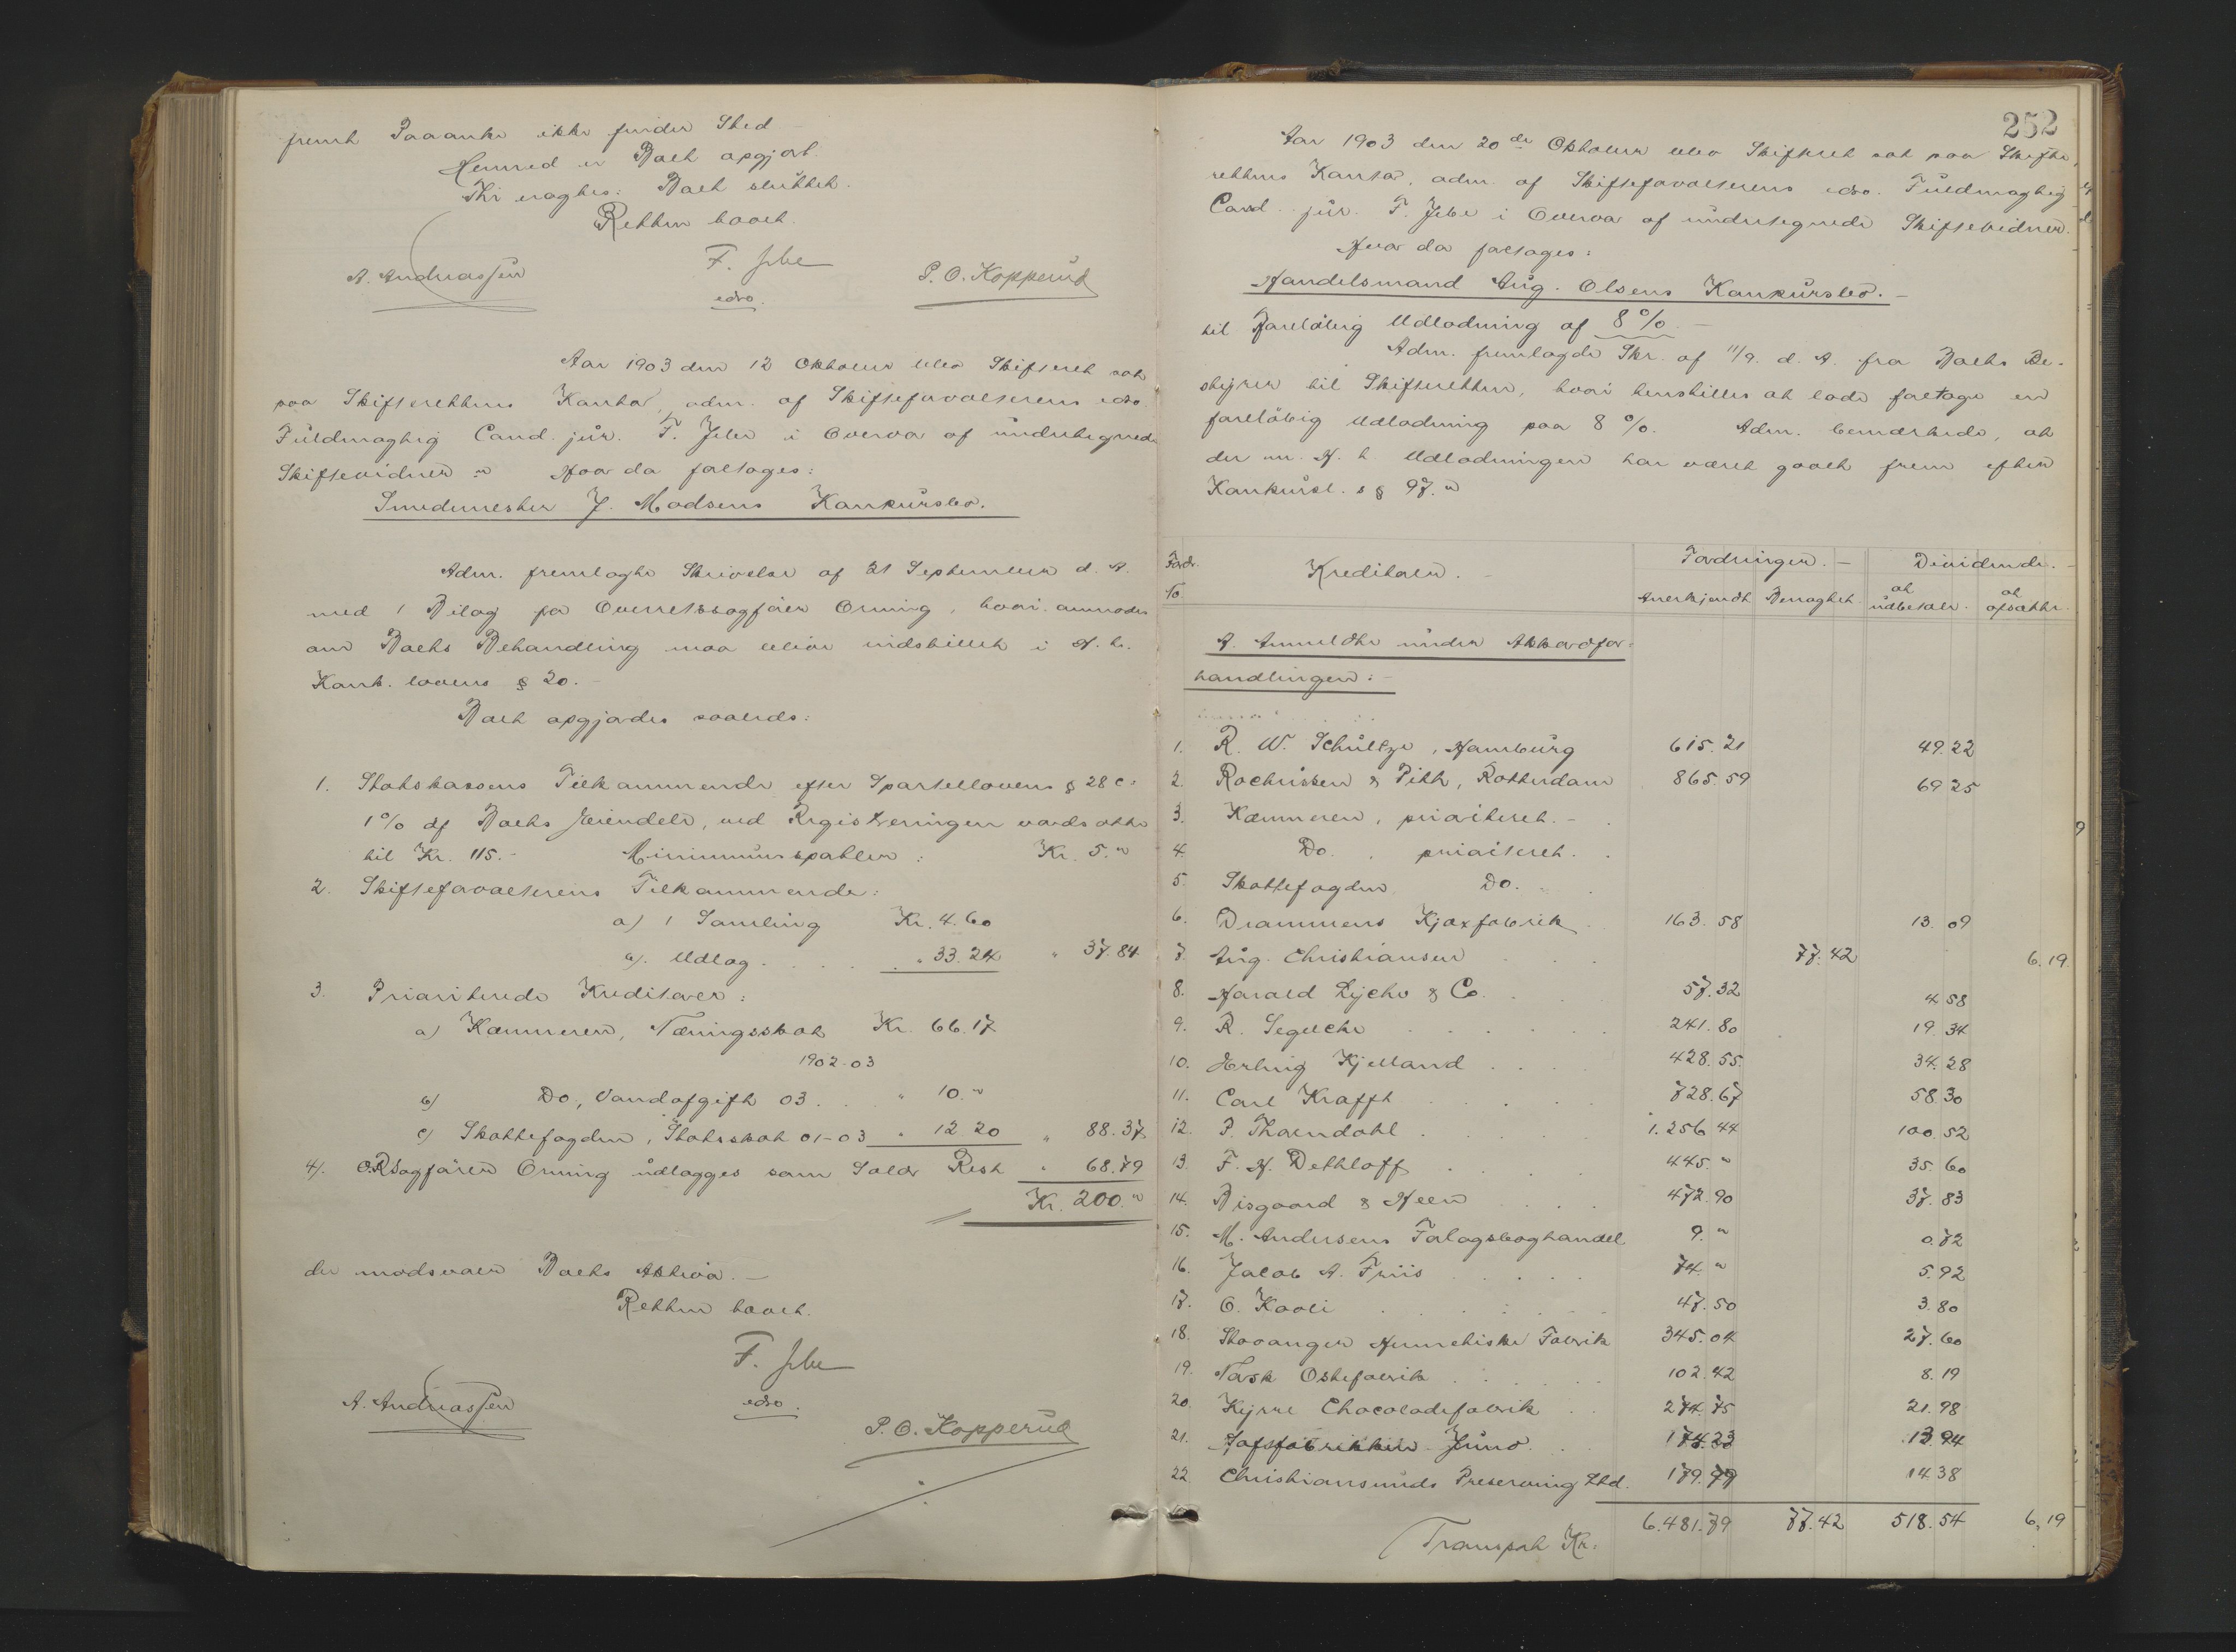 fremt Paaanke ikke finder Sted -
Hermed er Boet opgjort.
Thi eragtes: Boet sluttet.
Retten hævet.
F. Jebe
edsv.
A. Andreassen
P. O. Kopperud
Aar 1903 den 12 Oktober blev Skifteret sat
paa Skifterettens Kontor, adm. af Skifteforvalterens edsv.
Fuldmægtig Cand. jur. F. Jebe i Overvær af undertegnede
Skiftevidner " Hvor da foretoges:
Smedemester J. Madsens Konkursbo.
Adm. fremlagte Skrivelse af 21 September d. A.
med 1 Bilag fra Overretssagfører Orning, hvori anmodes
om Boets Behandling maa blive indstillet i H. t.
Konk. lovens § 20. -
Boet opgjordes saaleds:
1. Statskassens Tilkommende efter Sportellovens § 28 c:
1% af Boets Eiendele, ved Registreringen værdsatte
til Kr. 115.- Minimumssportler: Kr. 5. "
2. Skifteforvalterens Tilkommende:
a) 1 Samling Kr. 4.60
b). Udlæg . . . . " 33.24 " 37.84
3. Prioriterede Kreditorer:
a) Kæmneren, Næringsskat Kr. 66.17
1902-03
b) Do., Vandafgift 03 . . " 10. "
c) Skattefogden, Statsskat 01-03 " 12.20 " 88.37
4). O.R.Sagfører Orning udlægges som Salær Rest " 68.79
Kr. 200. "
der modsvarer Boets Aktiva. -
Retten hævet.
F. Jebe
edsv.
A. Andreassen
P. O. Kopperud
252
Aar 1903 den 20de Oktober blev Skifteret sat paa Skifte-
rettens Kontor, adm. af Skifteforvalterens edsv. Fuldmægtig
Cand. jur. F. Jebe i Overvær af undertegnede Skiftevidner.
Hvor da foretoges:
Handelsmand Aug. Olsens Konkursbo. -
til Foreløbig Udlodning af 8 % -
Adm. fremlagde Skr. af 11/9. d. A. fra Boets Be-
styrer til Skifteretten, hvori henstilles at lade foretage en
foreløbig Udlodning paa 8 %. Adm. bemærkede, at
der m. H. t. Udlodningen har været gaaet frem efter
Konkursl. s § 97. "
Fordr. No Kreditorer. - Fordringer. - Dividende. -
Anerkjendt Benægtet at udbetaler. at afsætte.
A. Anmeldte under Akkordfor-
handlingen: -
1. R. W. Schultze, Hamburg 615.21 49.22
2. Rochussen & Pitt, Rotterdam 865.59 69 25
3. Kæmneren, prioriteret. -
4. Do. , prioriteret.
5. Skattefogden Do.
6. Drammens Kjæxfabrik 163.58 13.09
7. Aug. Christiansen 77.42 6.19
8. Harald Lyche & Co. 57.32 4 58
9. R. Segelcke 241.80 19.34
10. Herling Kjelland 428.55. 34.28
11. Carl Krafft 728.67 58.30
12. P. Thorndahl 1.256 44 100.52
13. F. H. Dethloff 445. " 35.60
14. Bisgaard & Heen 472.90 37.83
15. M. Andersens Forlagsboghandel 9. " 0.72
16. Jacob A. Friis 74. " 5.92
17. O. Kavli 47.50 3.80
18. Stavanger Hermetiske Fabrik 345.04 27.60
19. Norsk Ostefabrik 102.42 8.19
20. Kejser Chocoladefabrik 274.75 21.98
21. Saftfabrikken Juno 174.23 13 94
22 Christiansunds Preserving Ltd. 179.79 14.38
Transport Kr: 6.481.79 77.42 518.54 6,19